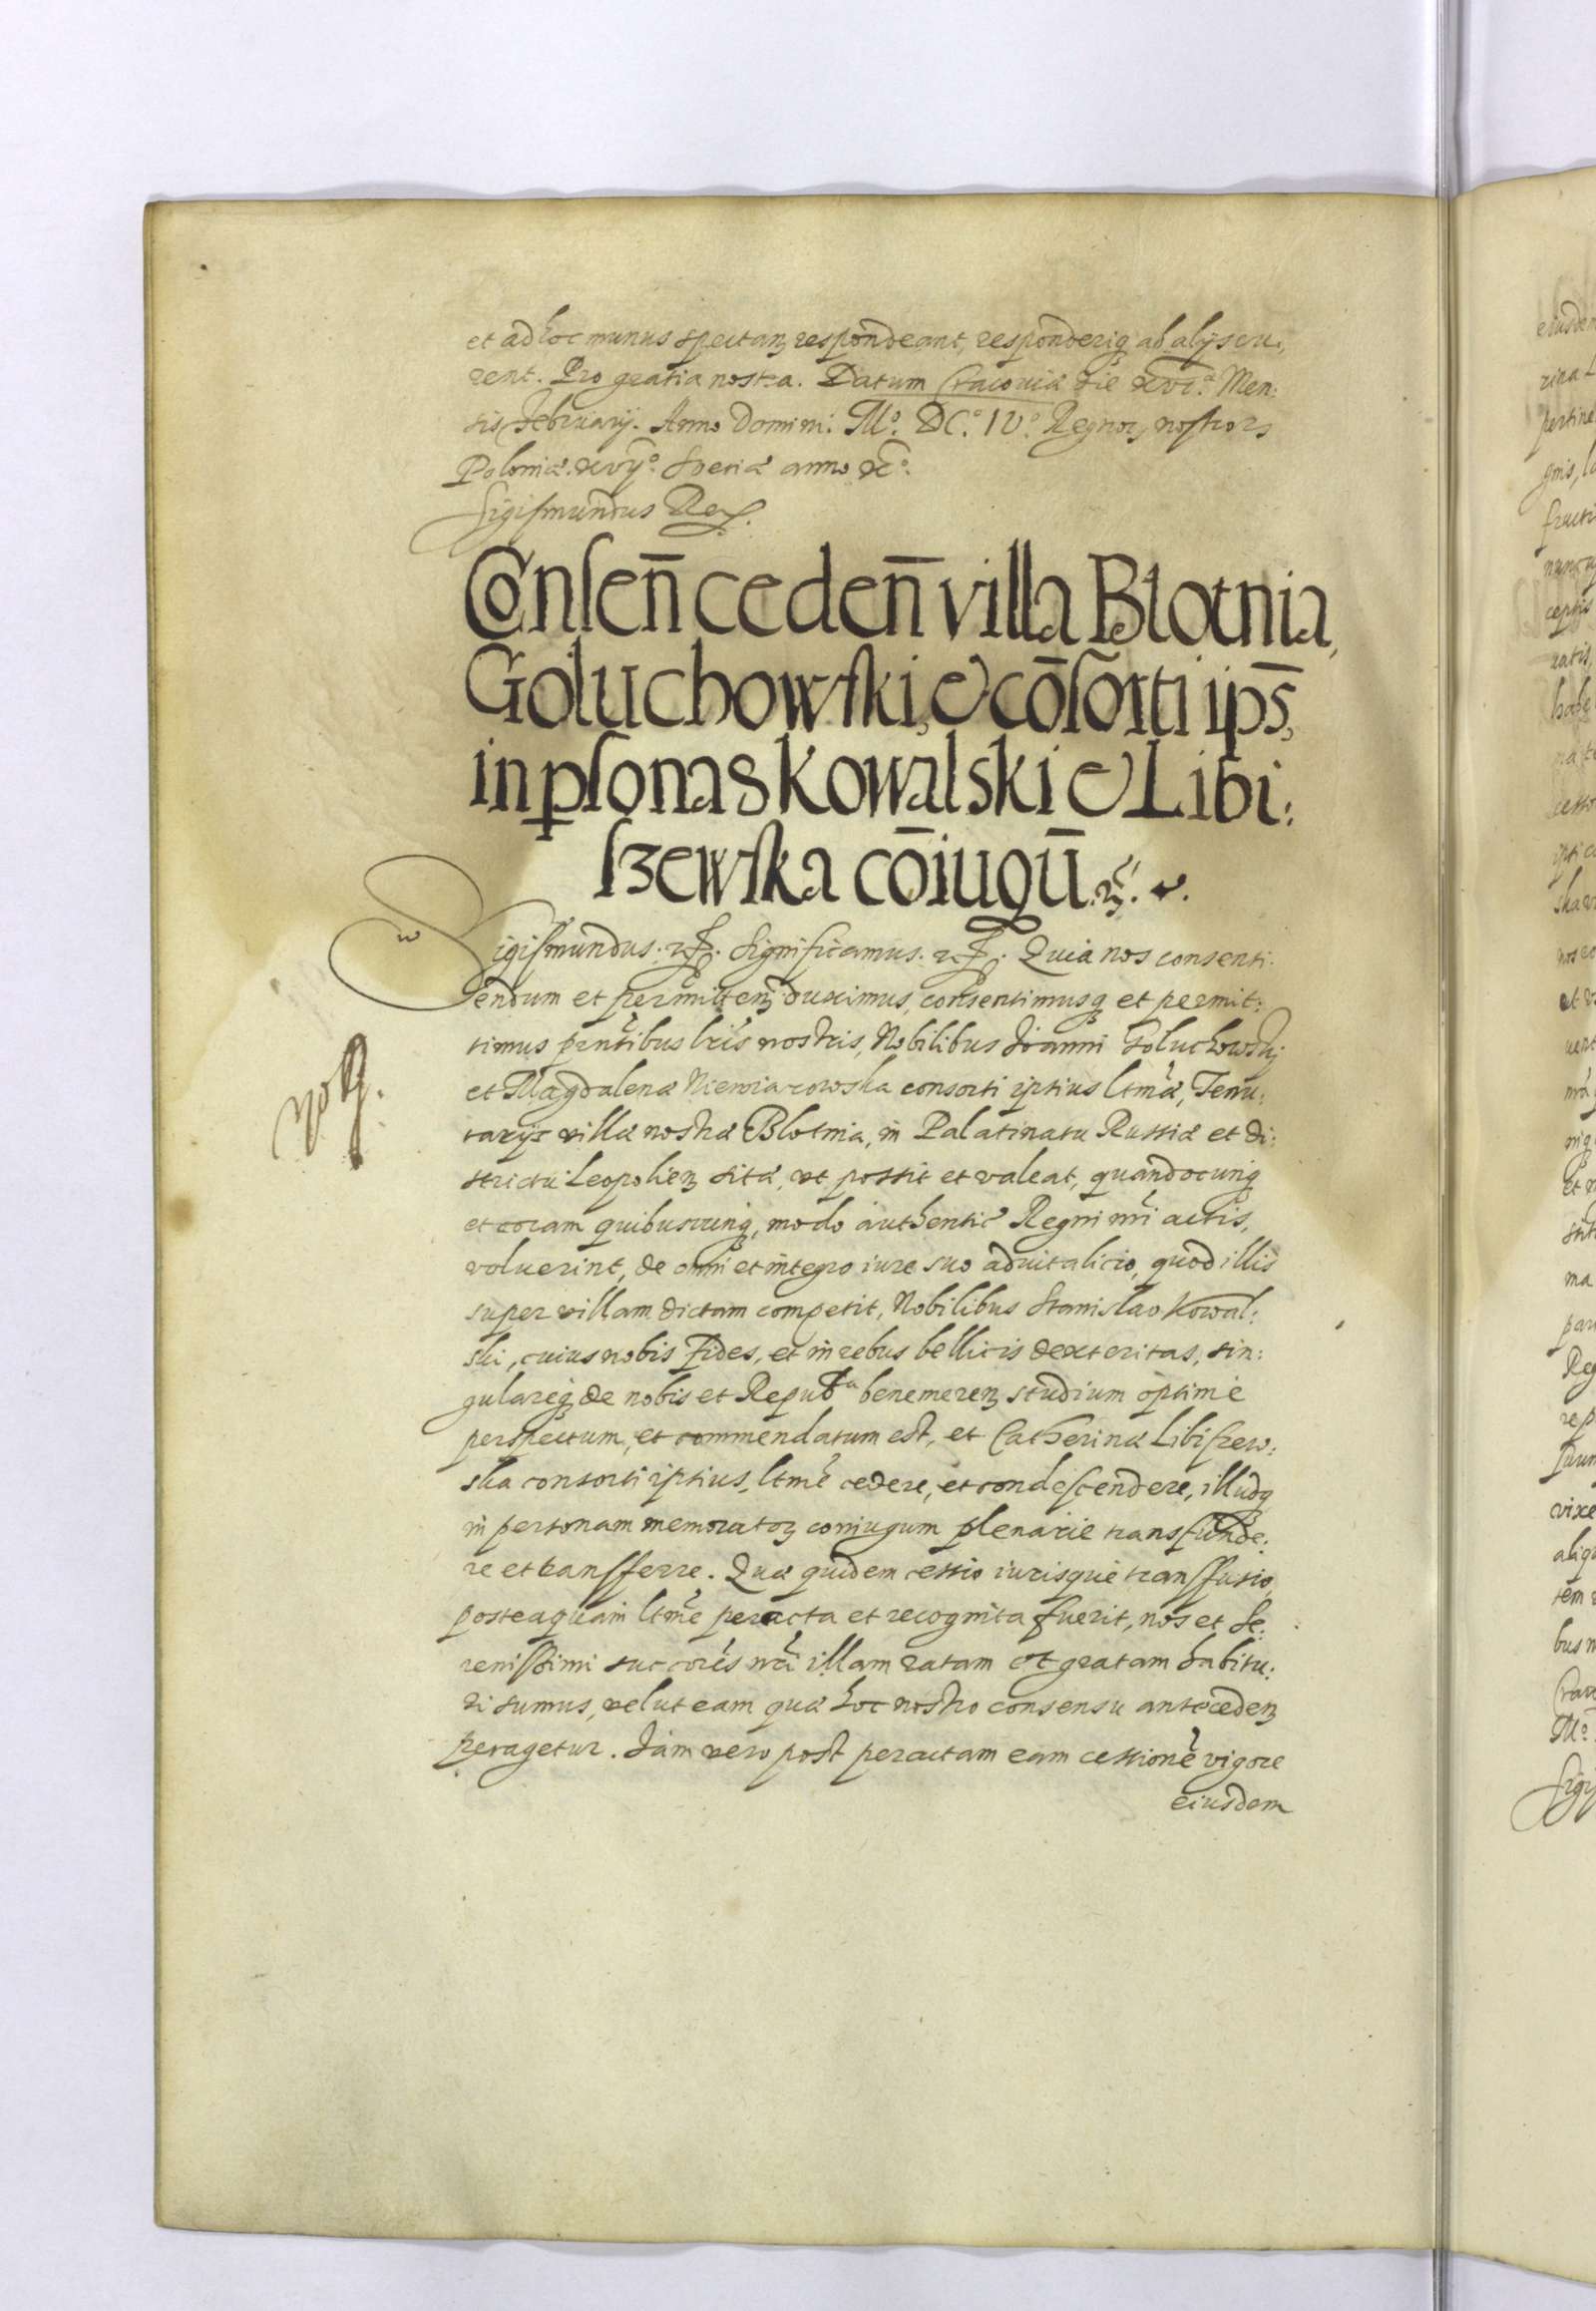 et ad hoc munus spectan respondeant, responderiq ab alijs cu:
rent. Pro gratia nostra. Datum Cracoviæ die xvi.a Men:
sis Februarij. Anno Domini M.o DC.o IV.o Regnor nostror
Poloniæ. xvij.o Sveciæ anno xo.
Sigismundus Rex.
Consen̄ ceden̄ villa Blotnia,
Goluchowski, & cōsorti ips̄,
in psonas Kowalski & Libi:
szewska cōiugū
Sigismundus. Significamus. Quia nos consenti:
endum et permitten duximus, consentimusq et permit:
timus pntibus lris nostris, Nobilibus Joanni Goluchowskj
et Magdalenæ Niewiarowska consorti ipsius ltmæ, Tenu:
tarijs villæ nostræ Blotnia, in Palatinatu Russiæ et di:
strictu Leopolien sitæ, ut possit et valeat, quandocunq
et coram quibuscunq, modo authentic Regni nri actis,
voluerint, de omni et integro iure suo advitalicio, quod illis
super villam dictam competit, Nobilibus Stanislao Kowal:
ski, cuius nobis fides, et in rebus bellicis dexteritas, sin:
gulareq de nobis et Repub.a benemeren studium optime
perspectum, et commendatum est, et Catherinæ Libiszew:
ska consorti ipsius, ltme cedere, et condescendere, illudq
in personam memorator coniugum plenarie transfunde:
re et transfferre. Quæ quidem cessio iurisque transfusio,
posteaquam ltme peracta et recognita fuerit, nos et Se:
renissimi succores nri illam ratam et gratam habitu:
ri sumus, velut eam quæ hoc nostro consensu anteceden
peragetur. Jam vero post peractam eam cessione vigore
eiusdem